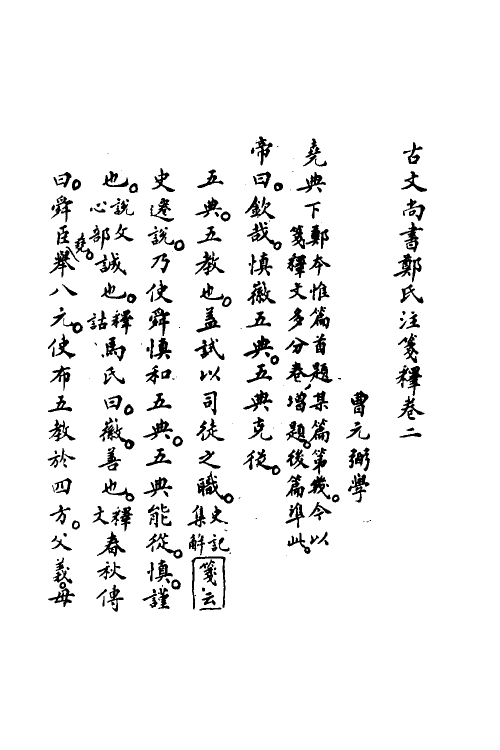 古文尚書鄭氏注箋釋卷二
曹元弼學
堯典下鄭本惟篇首題某篇第幾。今以
箋釋文多分卷增題。後篇準此。
帝曰。欽哉。慎徽五典。五典克從。
五典。五教也。蓋試以司徒之職。史記集解箋云
史遷說。乃使舜慎和五典。五典能從。慎謹
也。說文心部誠也。釋詁馬氏曰。徽。善也。釋文春秋傳
曰。舜臣堯。舉八元。使布五教於四方。父義。母